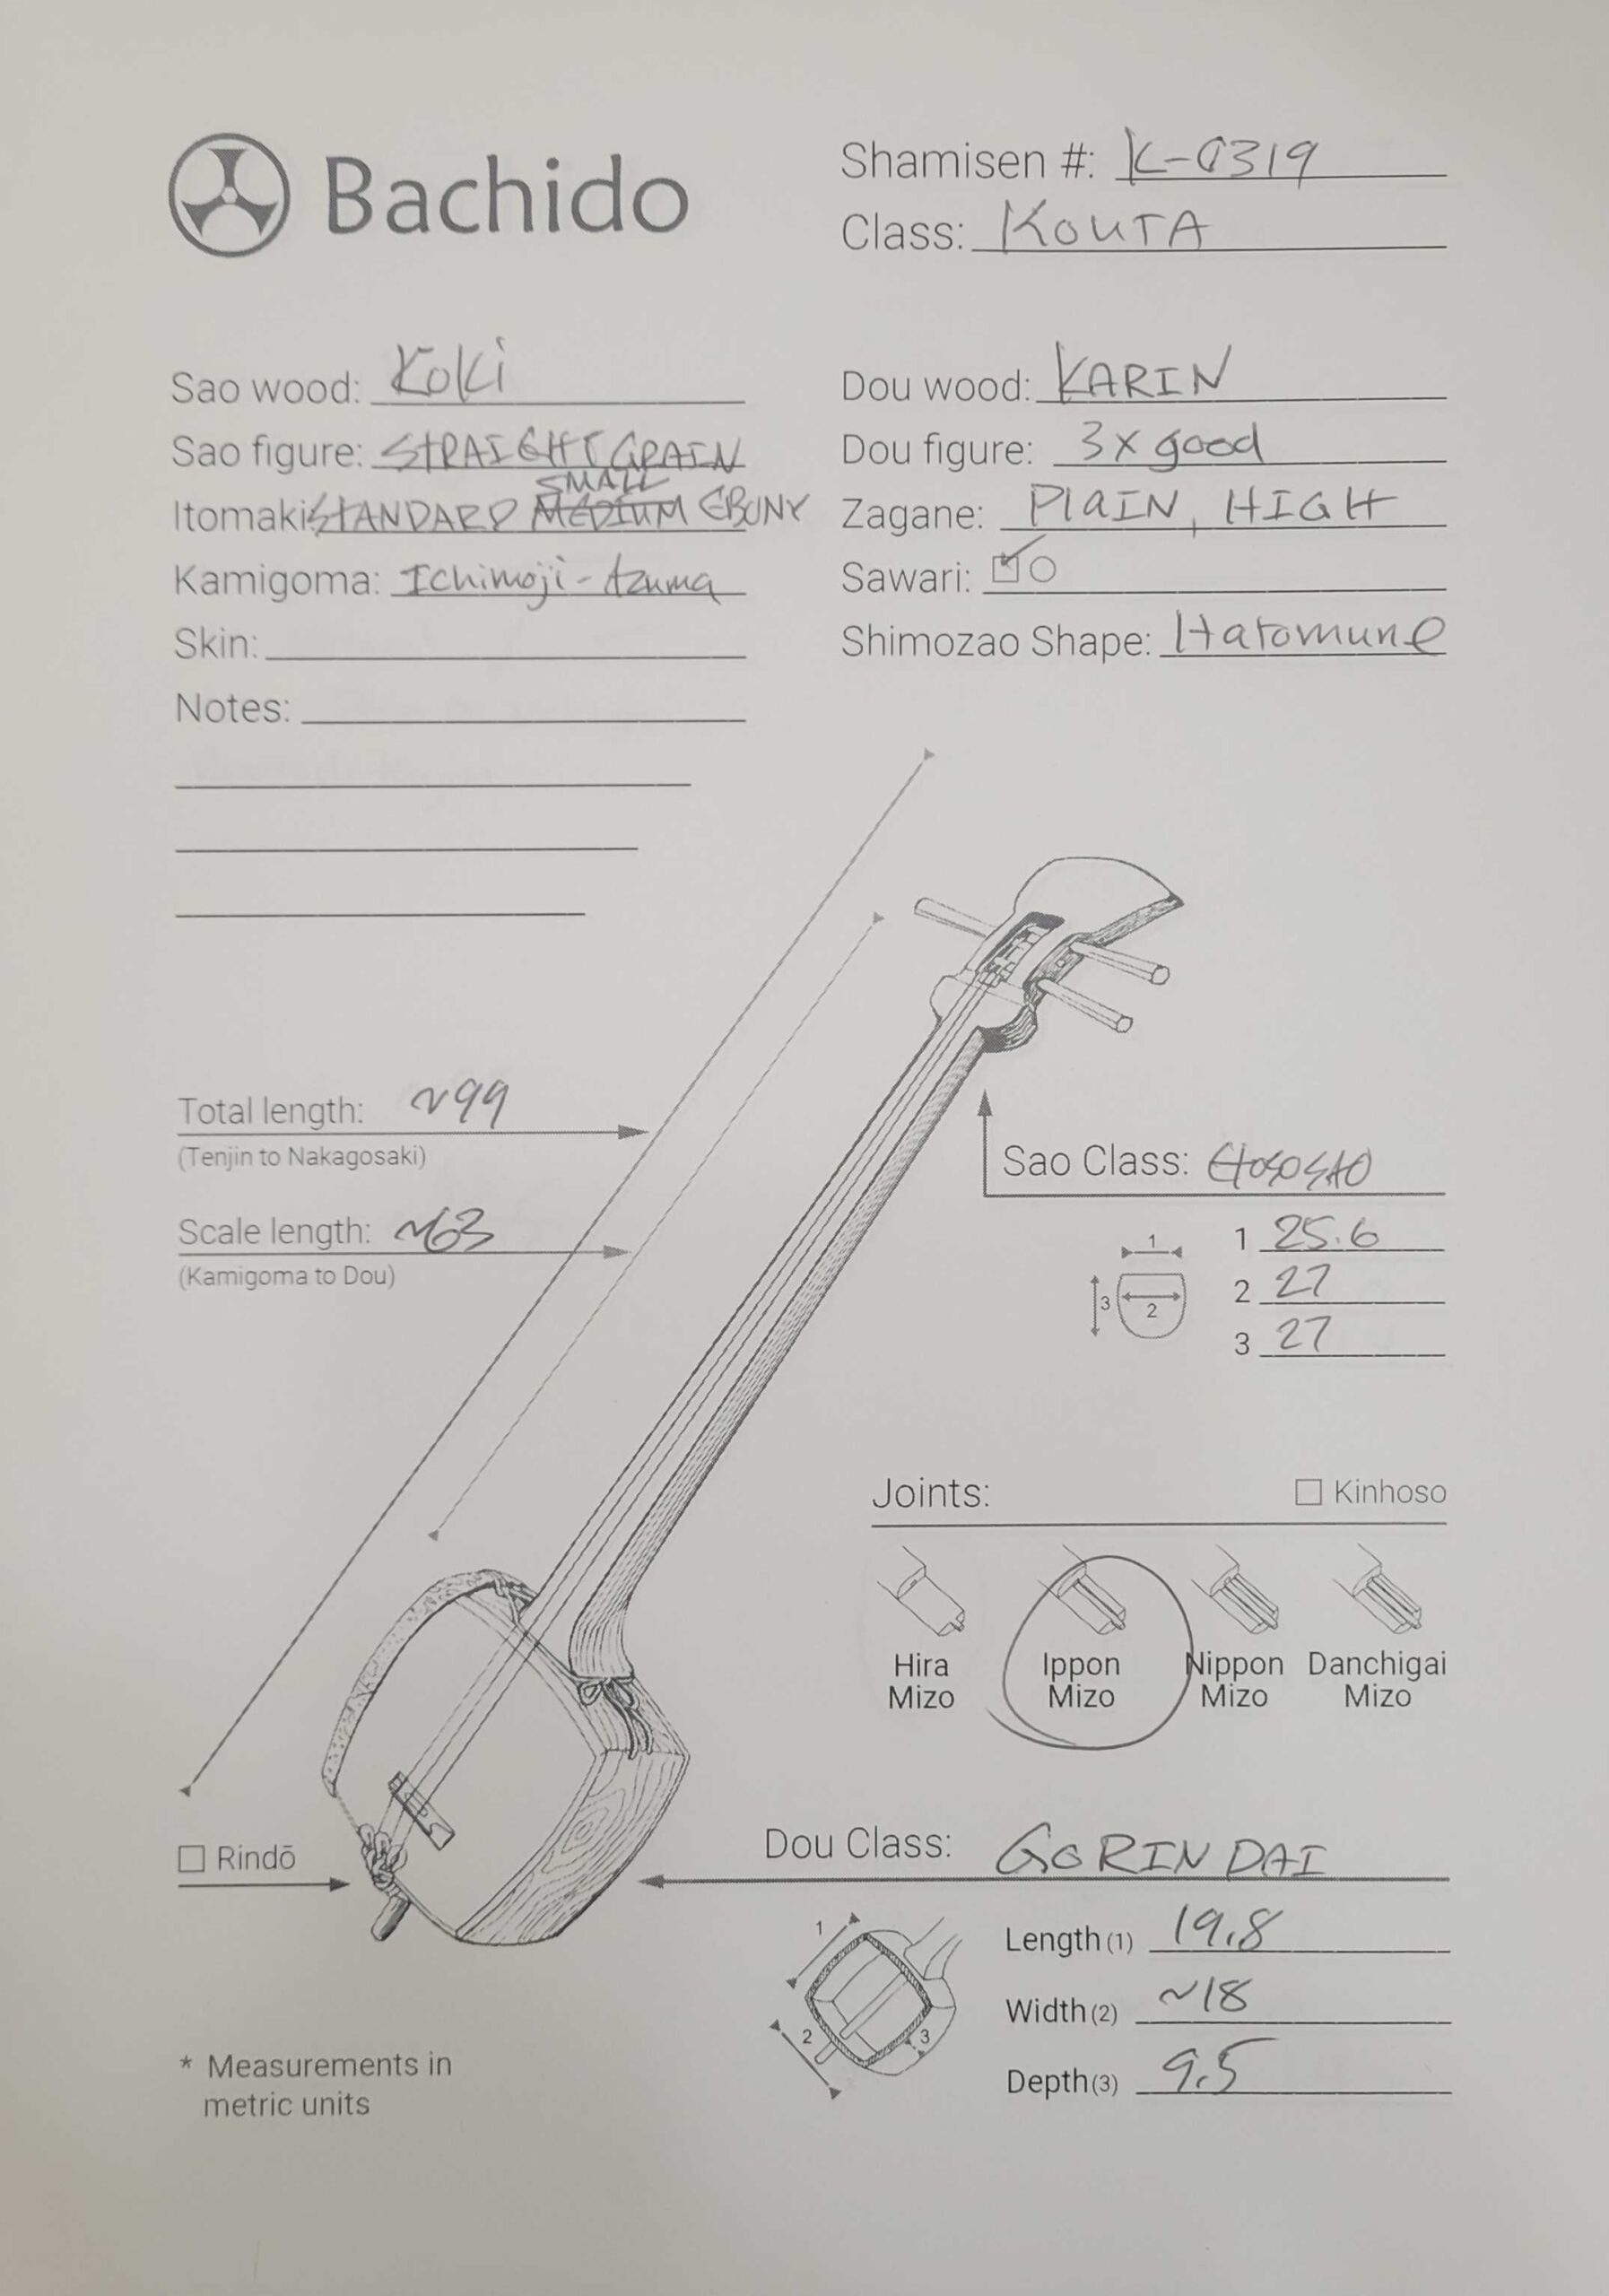 Bachido
Shamisen #: K-0319
Class: KOUTA
Sao wood: Koki
Dou wood: KARIN
Sao figure: STRAIGHT GRAIN
Dou figure: 3x good
SMALL
Itomaki: STANDARD MEDIUM EBONY
Zagane: PLAIN, HIGH
Kamigoma: Ichimoji-Azuma
Sawari:
Skin:
Shimozao Shape: Hatomune
Notes:
Total length: ~99
(Tenjin to Nakagosaki)
Sao Class: HOSOSAO
Scale length: ~63
(Kamigoma to Dou)
1 25.6
2 27
3 27
1
3
2
Joints:
Kinhoso
Hira Mizo
Ippon Mizo
Nippon Mizo
Danchigai Mizo
Rindō
Dou Class: GORIN DAI
1
2
3
Length(1) 19.8
Width(2) ~18
Depth(3) 9.5
* Measurements in
metric units